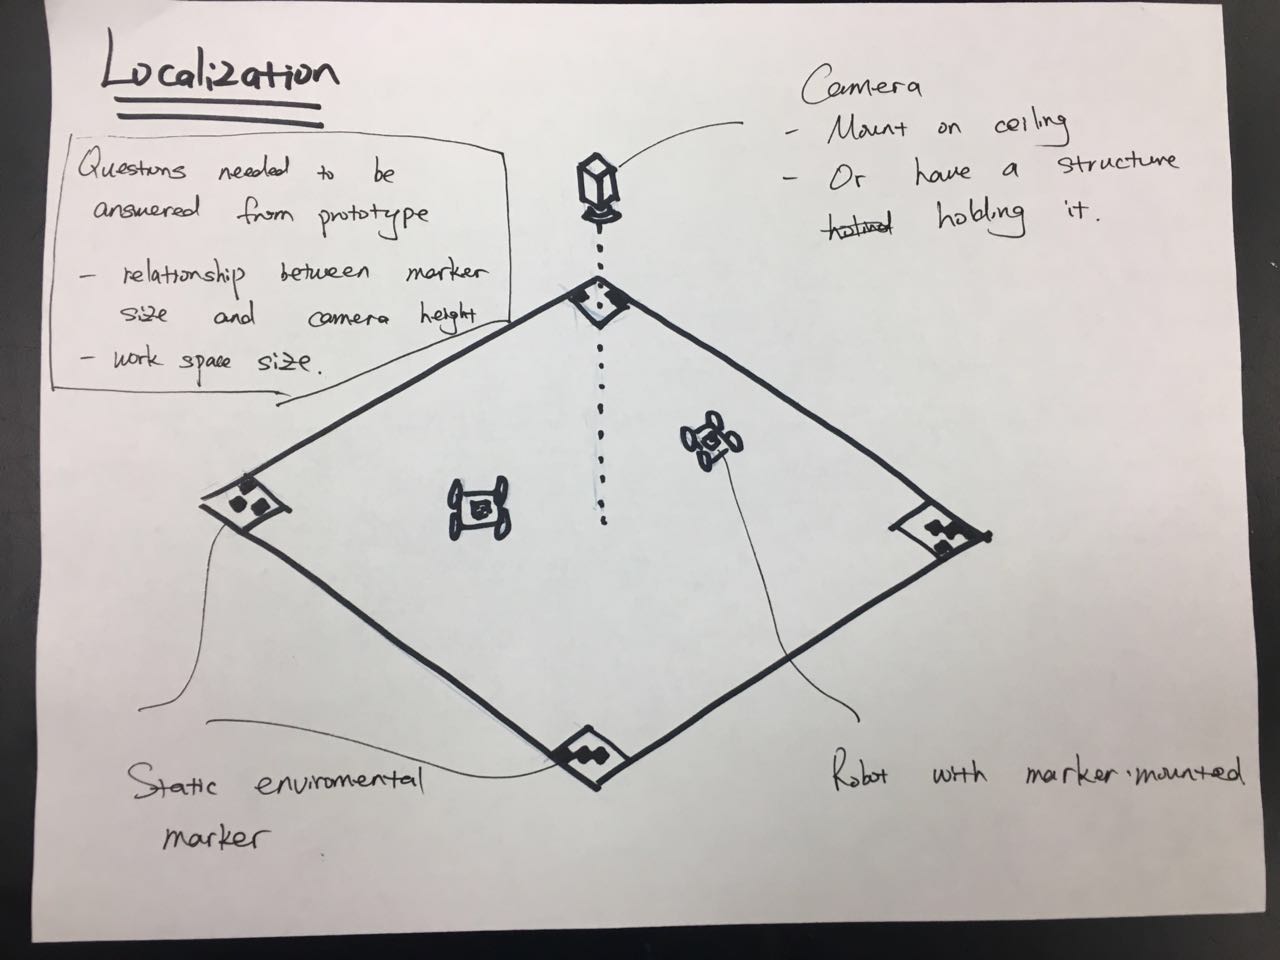 Localization
Questions needed to be
answered from prototype
- relationship between marker
size and camera height
- work space size.
Camera
- Mount on ceiling
- Or have a structure
holding it.
Static enviromental
marker
Robot with marker mounted